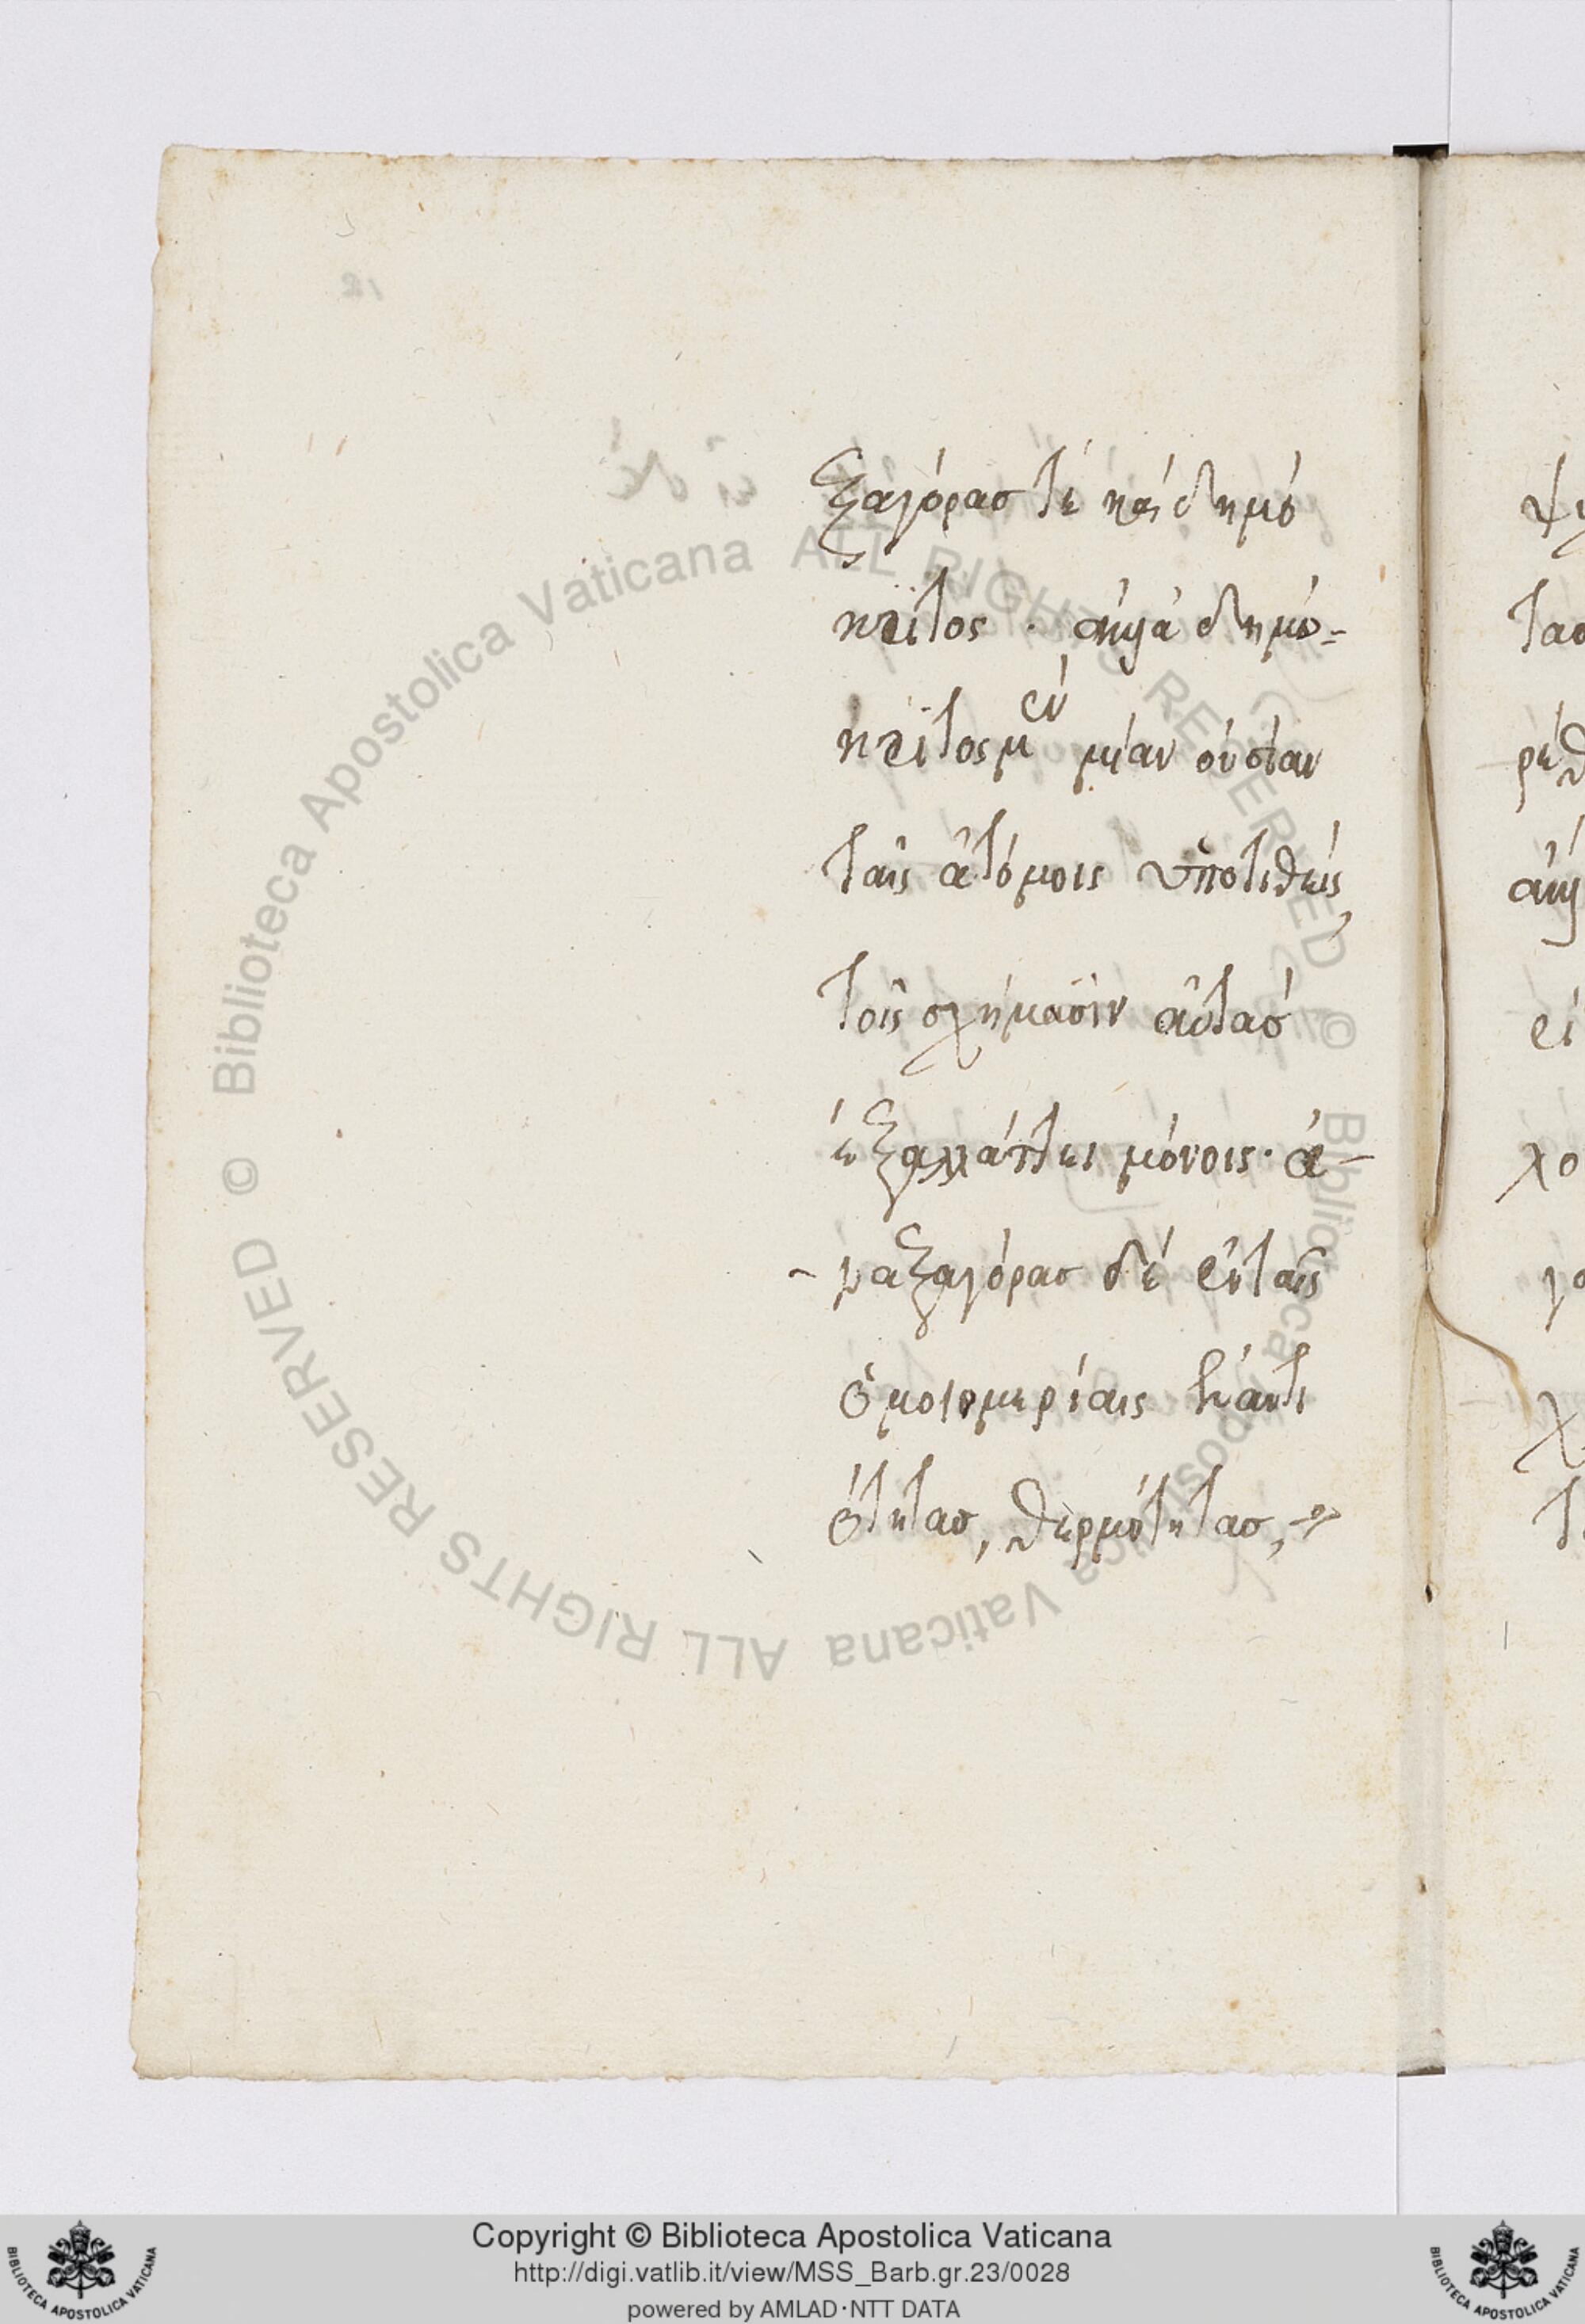 ξαγόρας τὲ καὶ δημό
κϊτος · ἀλλὰ δημό-
κϊτος μὲν μίαν οὐσίαν
ταῖς ἀτόμοις ὑποτιθεὶς,
τοῖς σχήμασιν αὐτὰς
ἐξαλλάττει μόνοις· ἀ-
ναξαγόρας δὲ ἐν ταῖς
ὁμοιομερίαις
θερμότητας,
Copyright © Biblioteca Apostolica Vaticana
http://digi.vatlib.it/view/MSS_Barb.gr.23/0028
powered by AMLAD·NTT DATA
© Biblioteca Apostolica Vaticana ALL RIGHTS RESERVED © Biblioteca Apostolica Vaticana ALL RIGHTS RESERVED
BIBLIOTECA APOSTOLICA VATICANA
BIBLIOTECA APOSTOLICA VATICANA